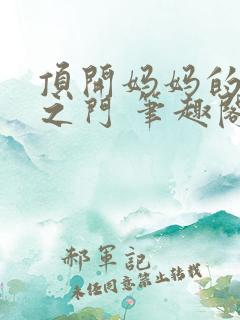 頂開妈妈的
之門 筆趣阁
郝軍記
未经同意禁止转载